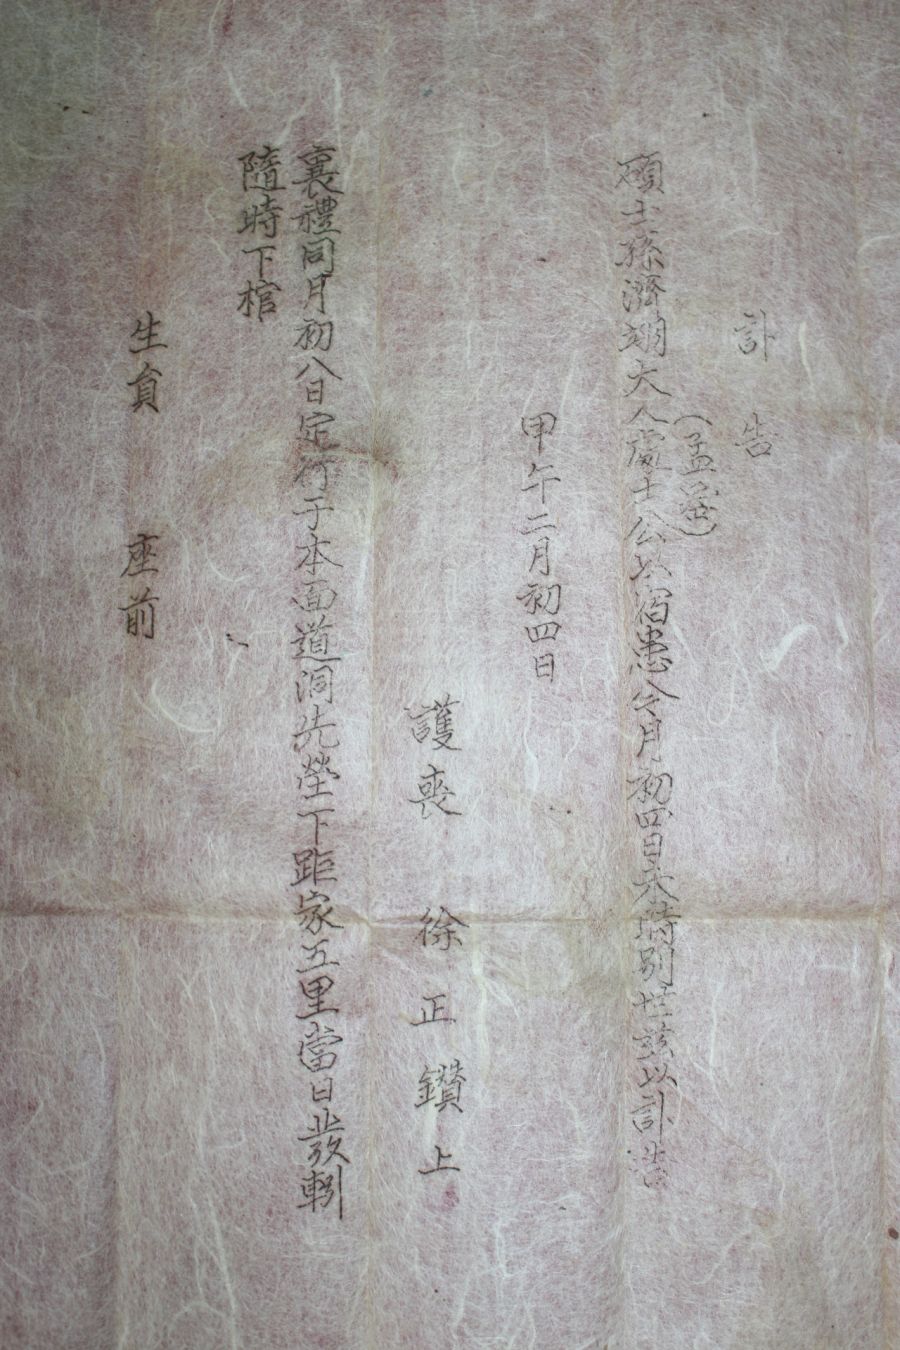 訃告
(孟岩)
碩士孫濟翊大人處士公以宿患今月初四日未時別世玆以訃告
甲午二月初四日
護喪 徐正鑽上
襄禮同月初八日定行于本面道洞先塋下距家五里當日發靷
隨時下棺
生員 座前